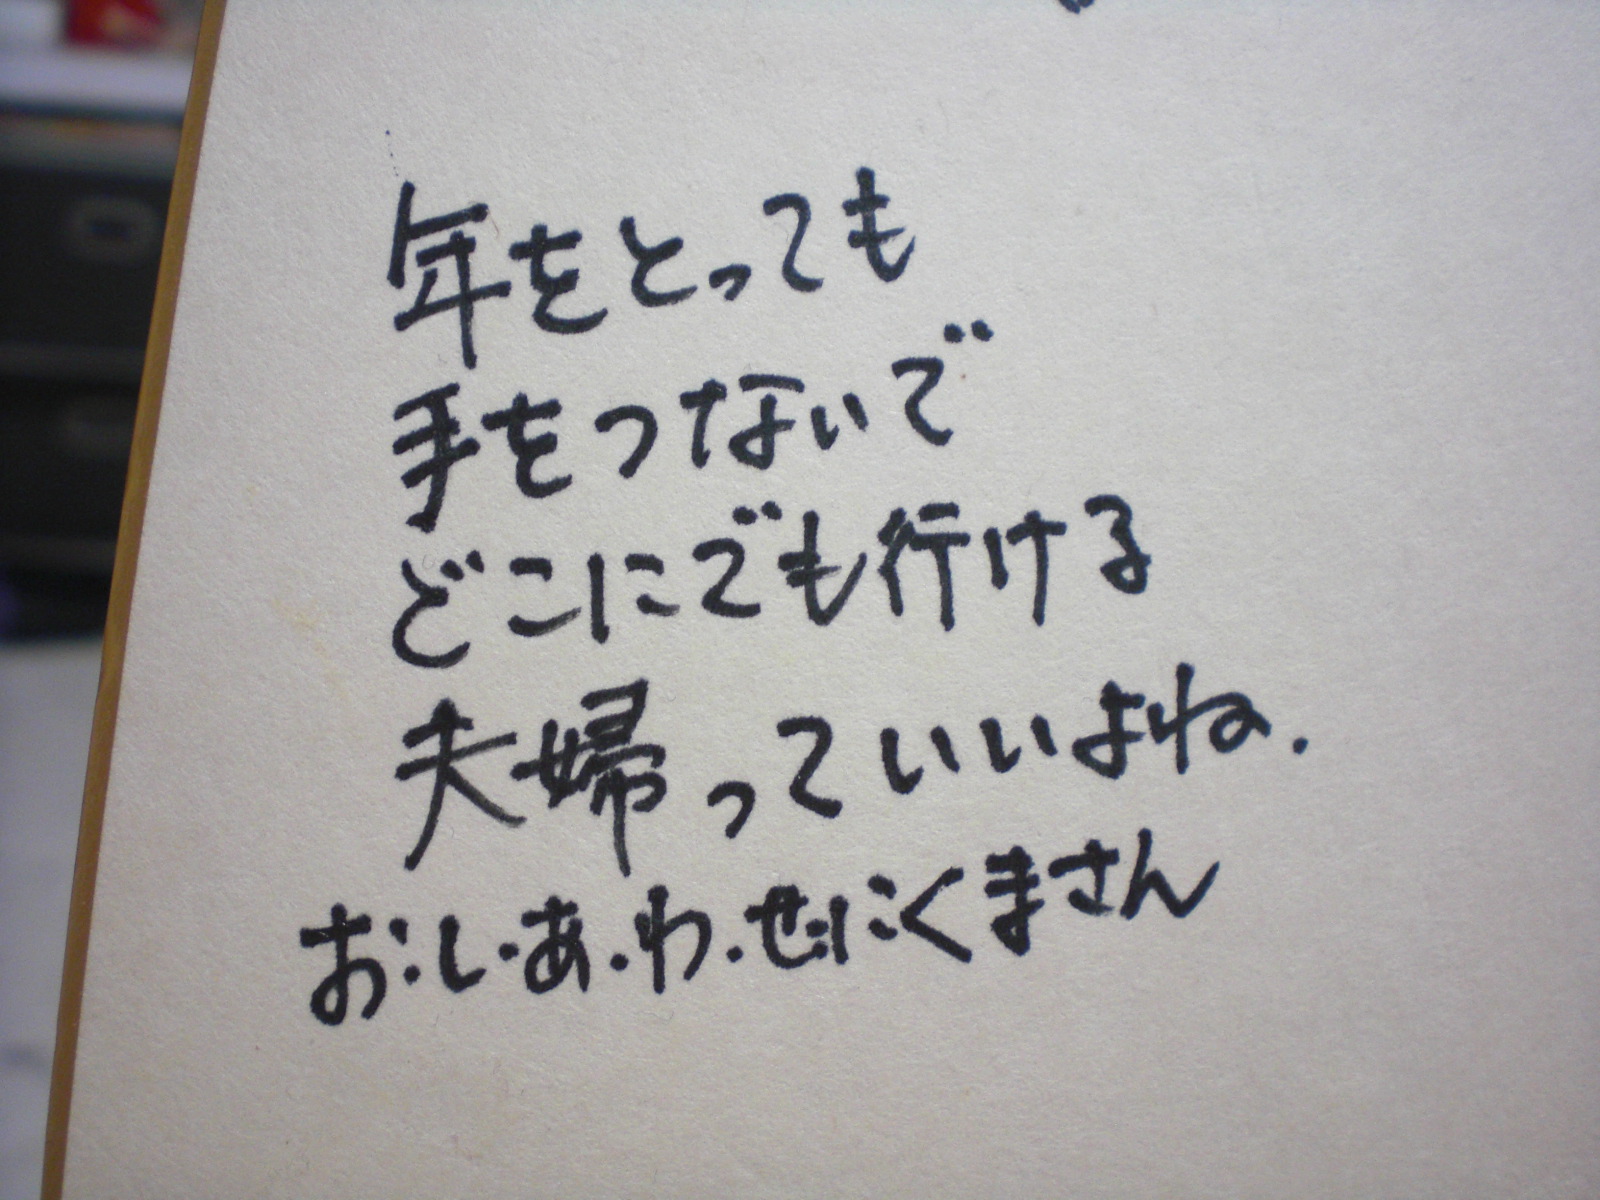 年をとっても
手をつないで
どこにでも行ける
夫婦っていいよね.
お・し・あ・わ・せにくまさん